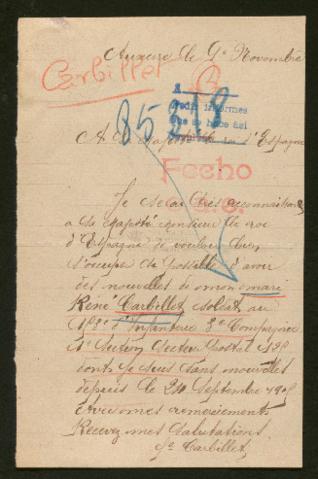 Auxerre le 9 Novembre
Carbillet
B
85218
A
Pedir informes
que se hace así
A sa Majesté d'Espagne
Fecho
Je serai très reconnaissante
a sa Majesté monsieur le roi
d'Espagne de vouloir bien
s'occupé si possible d'avoir
des nouvelles de mon mari
René Carbillet soldat au
d'Infanterie 8e Compagnie
1e Section Secteur Postal
dont je suis sans nouvelles
depuis le 24 Septembre
mes remerciements
Recevez mes salutations
Carbillet